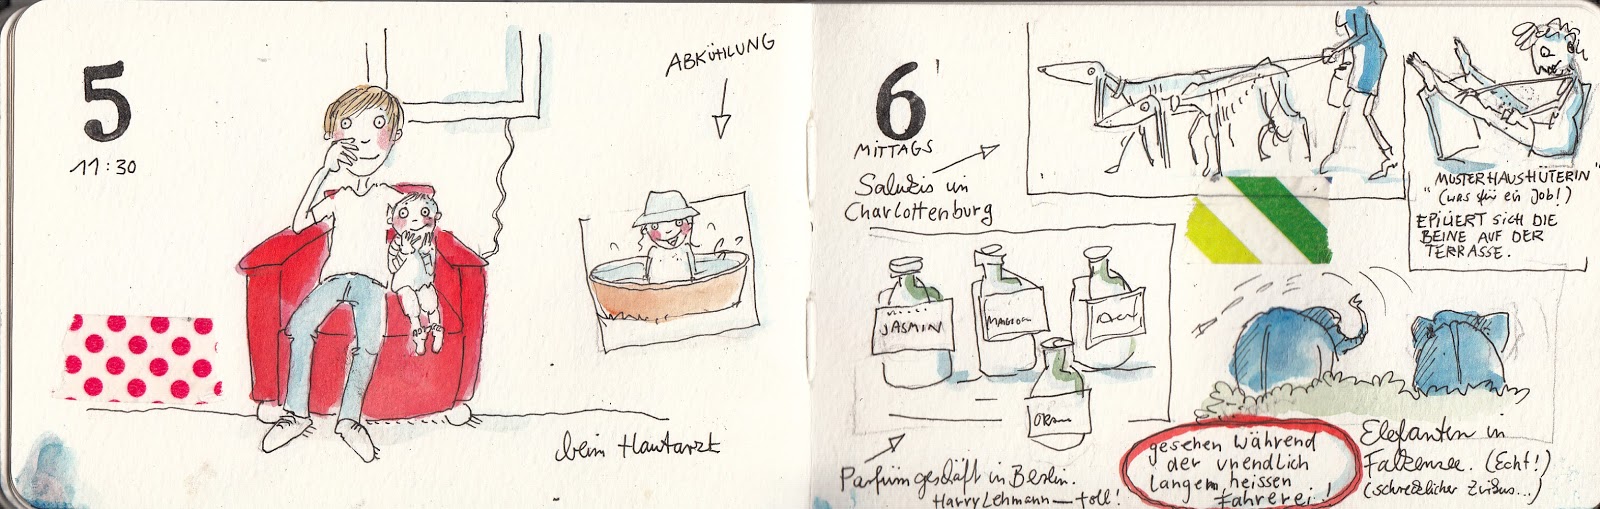 5
11:30
ABKÜHLUNG
beim Hautarzt
6
MITTAGS
Salukis in
Charlottenburg
"MUSTERHAUSHÜTERIN"
(was für ein Job!)
EPILIERT SICH DIE
BEINE AUF DER
TERRASSE.
JASMIN
Parfümgeschäft in Berlin.
Harry Lehmann — toll!
gesehen während
der unendlich
langen, heissen
Fahrerei!
Elefanten in
Falkensee. (Echt!)
(schrecklicher Zirkus...)